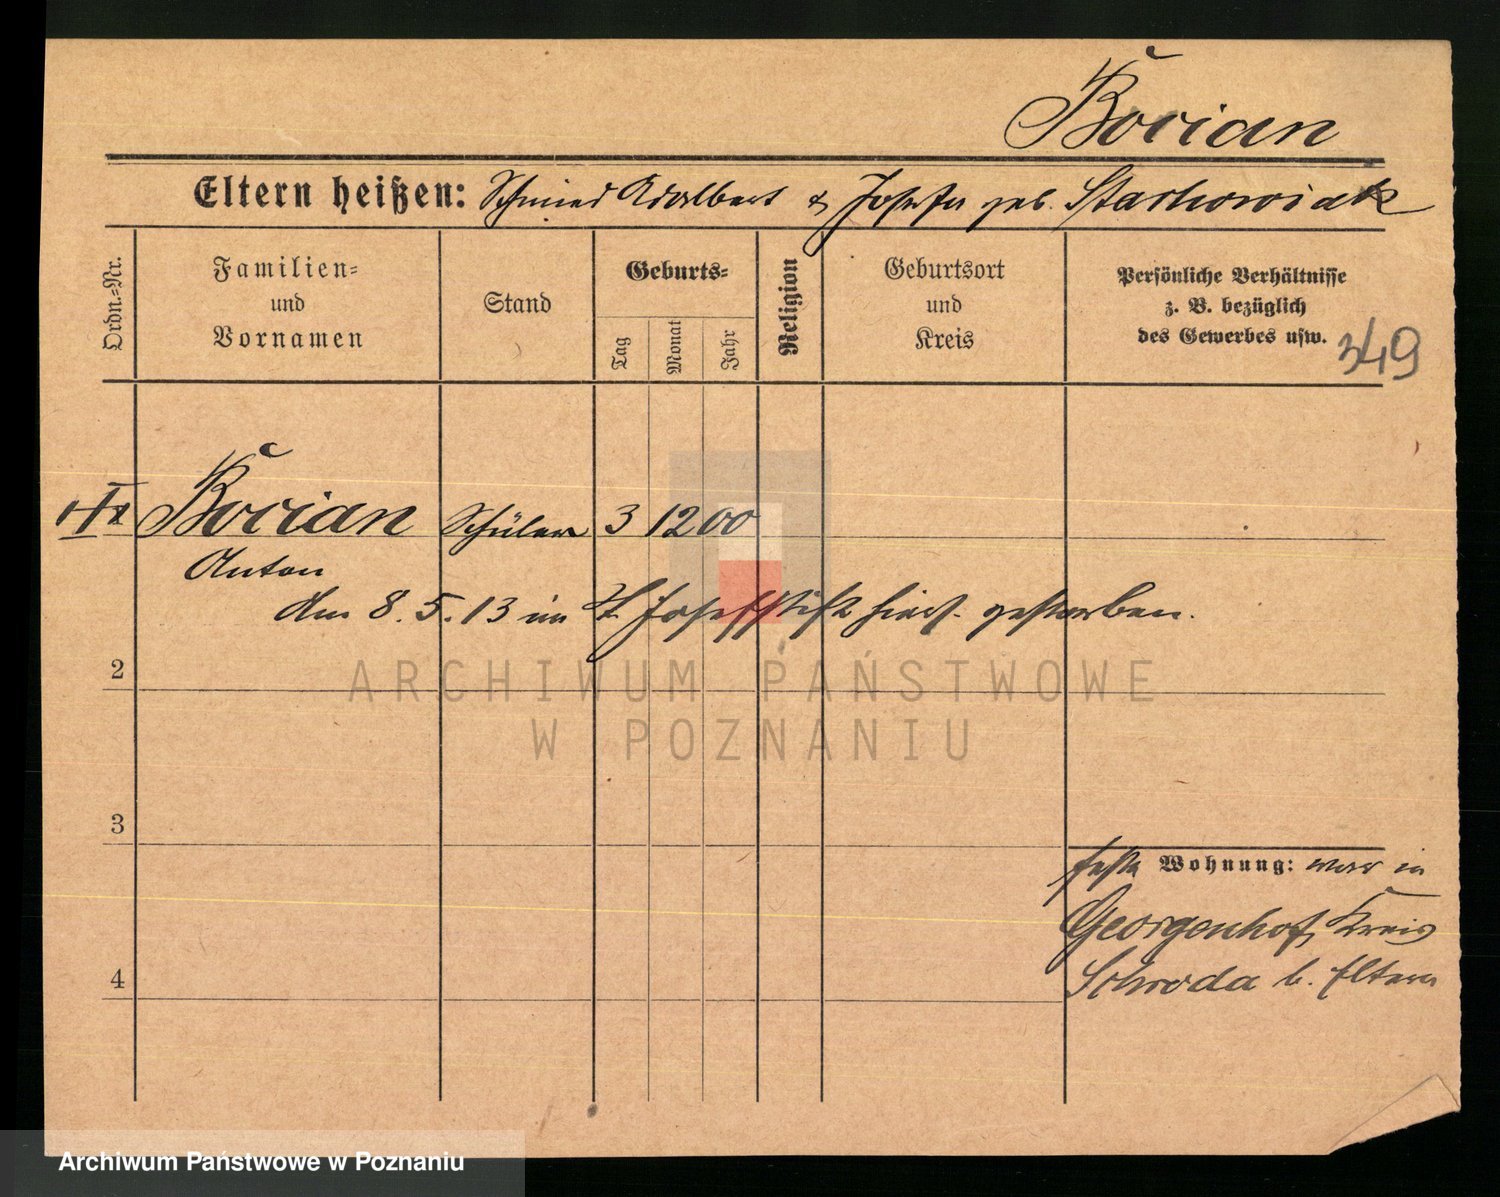 Bocian
Eltern heißen: Schmied Adalbert & Josefa geb. Stachowiak
Ordn.-Nr.
Familien-
und
Vornamen
Stand
Geburts-
Tag
Monat
Jahr
Religion
Geburtsort
und
Kreis
Persönliche Verhältnisse
z. B. bezüglich
des Gewerbes usw.
349
Bocian Schüler 3 12 00
Anton
Am 8.5.13 im St Josefstift hies. gestorben.
2
ARCHIWUM PAŃSTWOWE
W POZNANIU
3
feste Wohnung: war in
Georgenhof, Kreis
Schroda b. Eltern
4
Archiwum Państwowe w Poznaniu